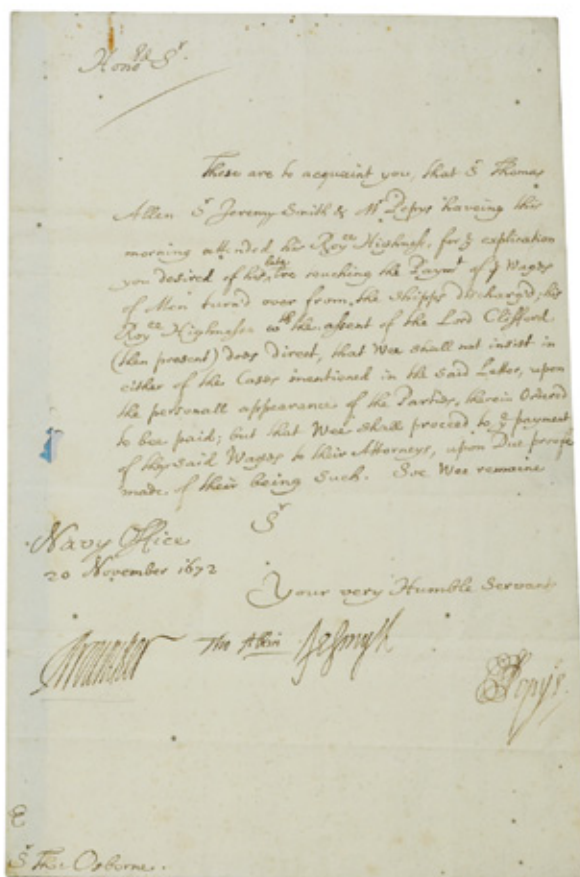 Hono.ed Sr.
These are to acquaint you, that Sr. Thomas
Allen Sr. Jeremy Smith & Mr. Pepys haveing this
morning attended his Roy.ll Highness, for ye explication
you desired of his late Lre touching the Paymt. of ye Wages
of Men turn'd over from the Shipps discharg'd; his
Roy.ll Highnesse wth. the assent of the Lord Clifford
(then present) does Direct, that Wee shall not insist in
either of the Cases mentioned in the said Letter, upon
the personall appearance of the Parties, therein Ordered
to bee paid; but that Wee shall proceed to ye payment
of the said Wages to their Attorneys, upon Due proofe
made of their being such. Soe Wee remaine
Sr.
Navy Office
20 November 1672
Your very Humble Servants
Brouncker Tho Allin JeSmyth
SPepys.
Sr. Tho: Osborne.